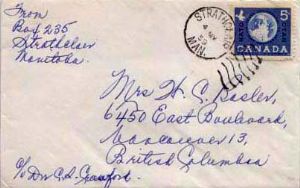 From
Box 235
Strathclair
Manitoba.
STRATHCLAIR
MAN
4 5
CANADA
Mrs H. C.
6450 East Boulevard,
Vancouver 13,
British Columbia
c/o Dr G. S. Crawford.